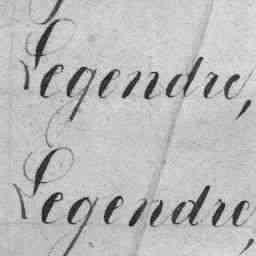 Legendre,
Legendre,